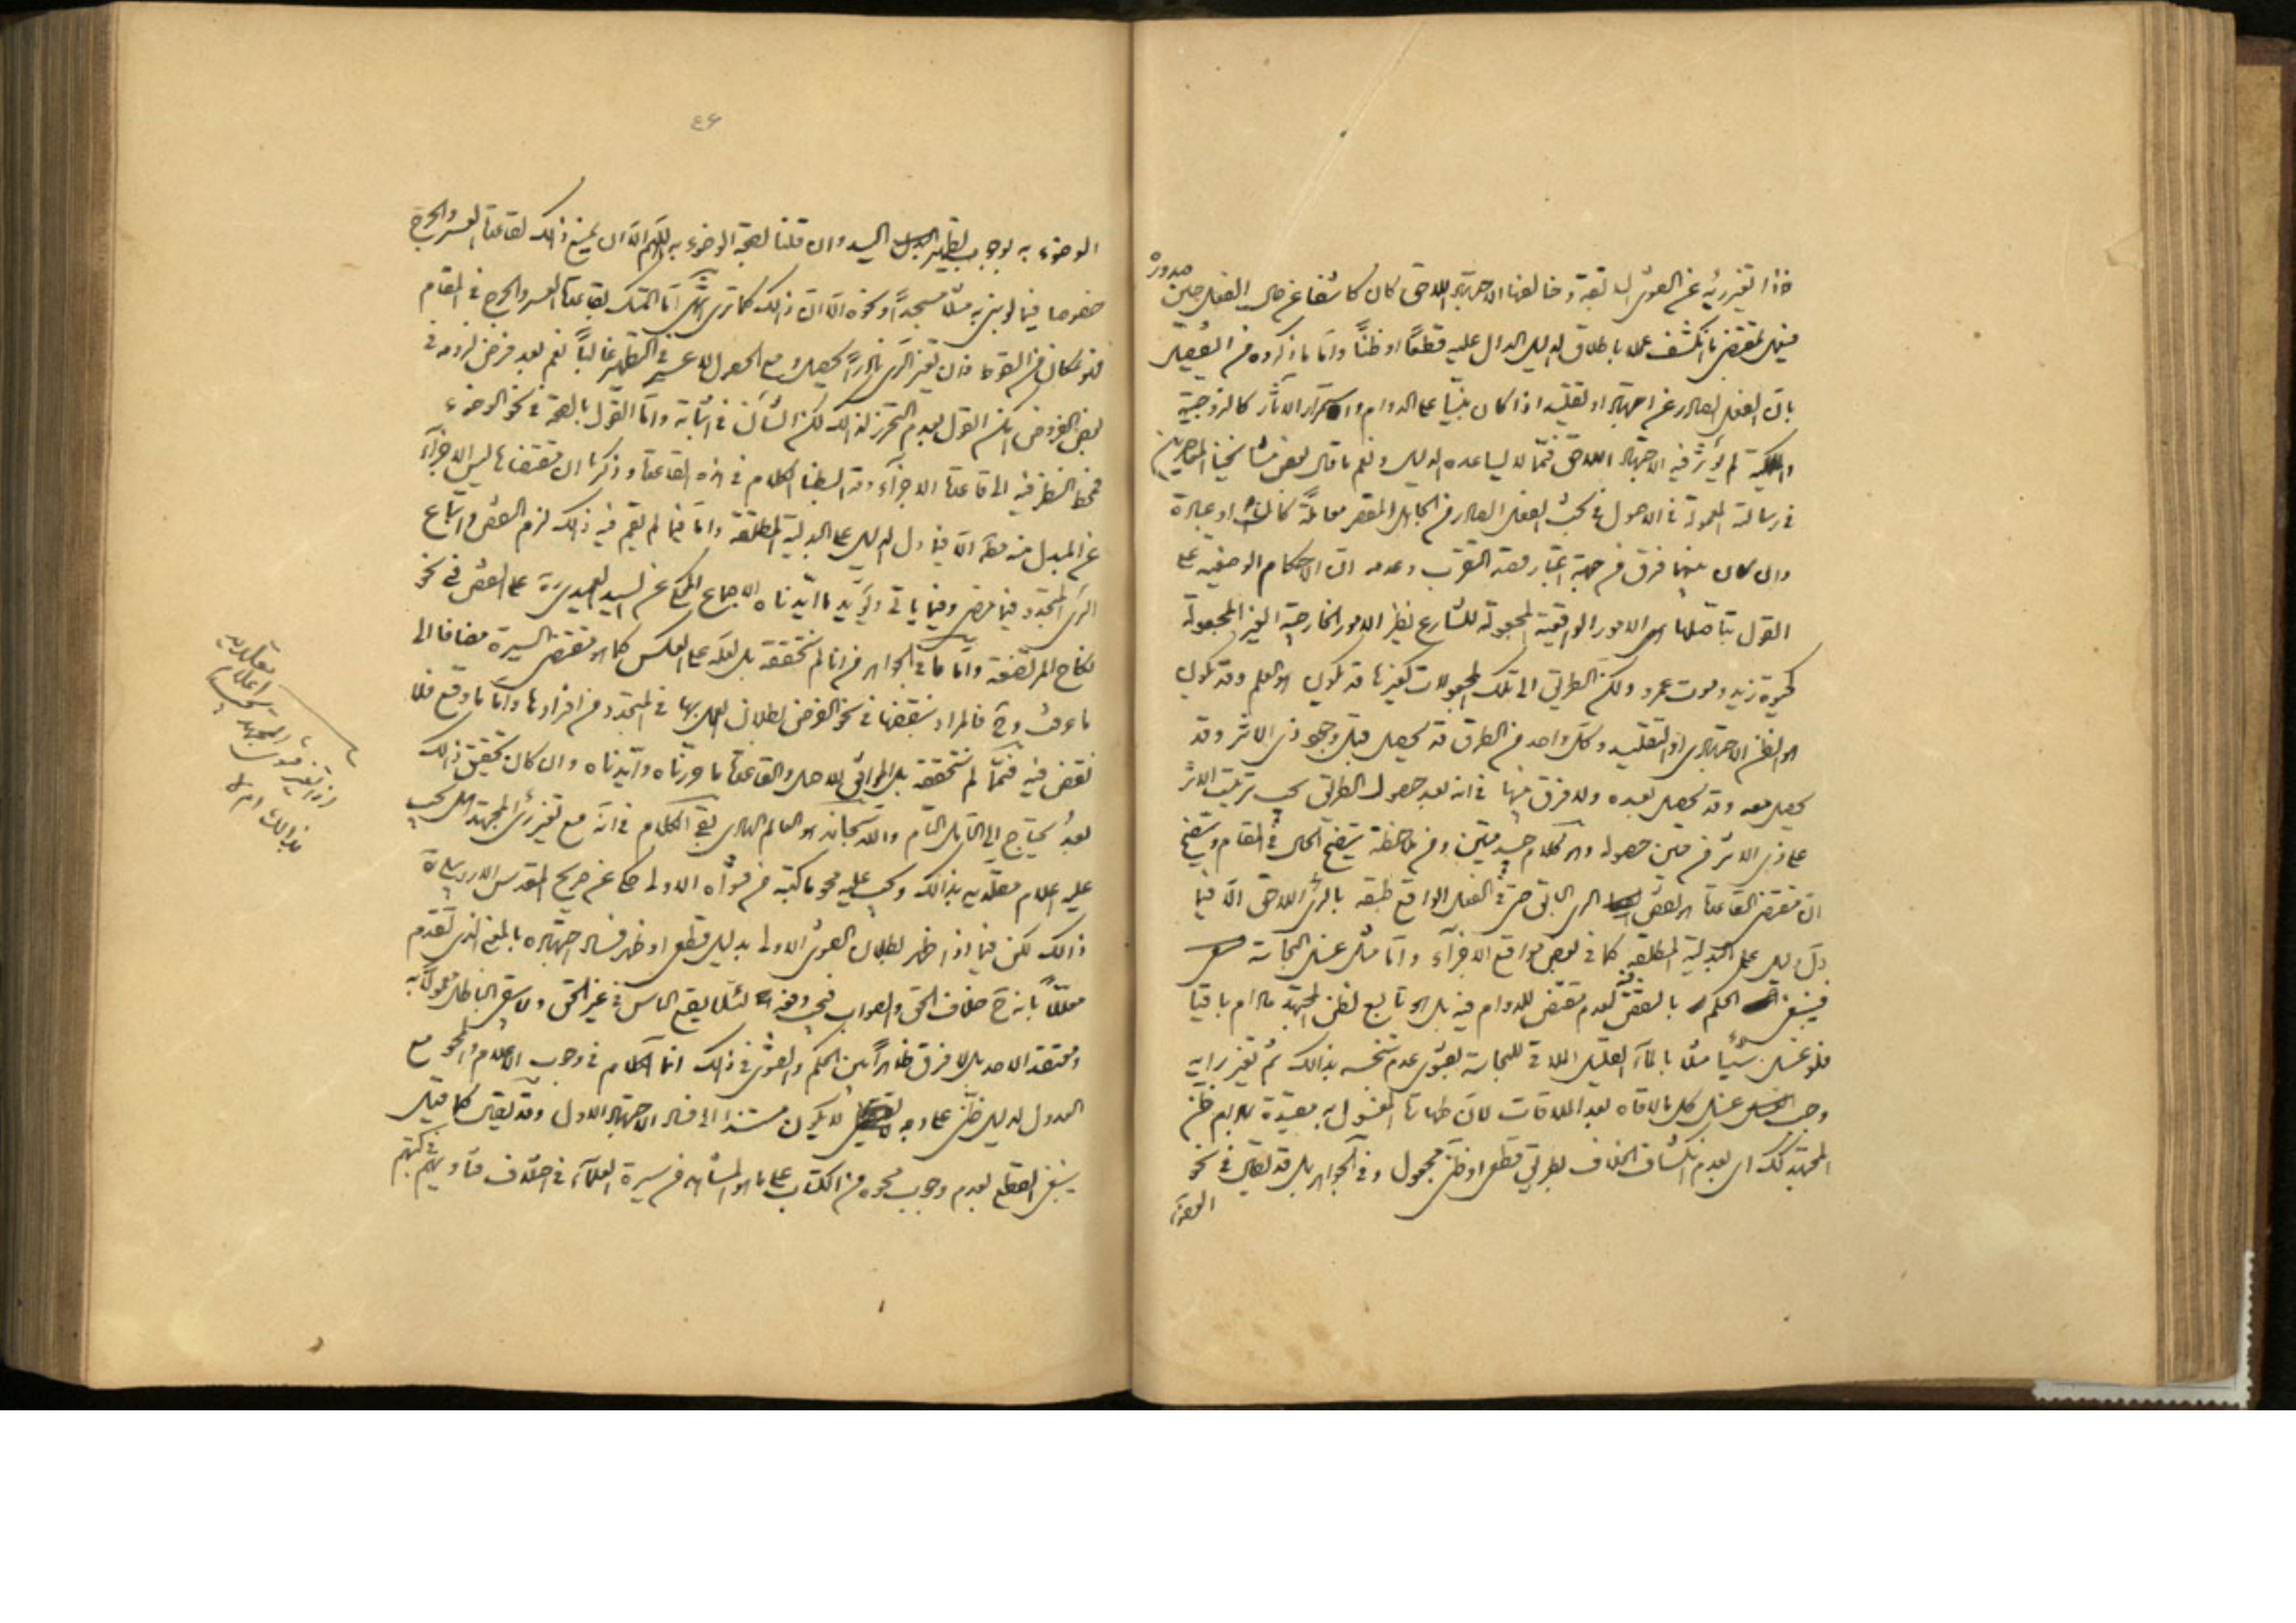 فاذا تغير رأيه عن الفتوى السابقة وخالفها الاجتهاد اللاحق كان كاشفا عن حال الفعل حين صدوره
فيعمل بمقتضى ما انكشف عملا باطلاق الدليل الدال عليه قطعا او ظنا واما ما ذكروه من التفصيل
بان الفعل الصادر عن اجتهاد او تقليد اذا كان مبنيا على الدوام واستمرار الآثار كالزوجية
والملكية لم يؤثر فيه الاجتهاد اللاحق فمما لا يساعده الدليل ونعم ما قال بعض مشايخنا المعاصرين
في رسالته المعمولة في الاصول في بحث الفعل الصادر من الجاهل المقصر معاملة كانت او عبادة
وان كان بينهما فرق من جهة اعتبار قصد التقرب وعدمه ان الاحكام الوضعية على
القول بتأصلها هي الامور الواقعية المجعولة للشارع نظير الامور الخارجية الغير المجعولة
كحيوة زيد وموت عمرو ولكن الطريق الى تلك المجعولات كغيرها قد تكون هو العلم وقد تكون
هو الظن الاجتهادي او التقليد وكل واحد من الطرق قد يحصل قبل وجود ذي الاثر وقد
يحصل معه وقد يحصل بعده ولا فرق بينها في انه بعد حصول الطريق يجب ترتيب الاثر
على ذي الاثر من حين حصوله وهو كلام جيد متين ومن ملاحظته يتضح الحال في المقام ويتضح
ان مقتضى القاعدة هو نقض الرأي السابق حتى في الفعل الواقع طبقه بالرأي اللاحق الا فيما
دل دليل على البدلية المطلقة كما في بعض مواقع الاجزاء واما مثل غسل النجاسة
فينبغي الحكم بالنقض فيه لعدم مقتض للدوام فيه بل هو تابع لظن المجتهد ما دام باقيا
فلو غسل شيئا مثلا بالماء القليل الملاقي للنجاسة بفتوى عدم تنجسه بذلك ثم تغير رأيه
وجب غسل كل ما لاقاه بعد الملاقات لان طهارة المغسول به مقيدة بدوام ظن
المجتهد كك اي بعدم انكشاف الخلاف بطريق قطعي او ظني مجعول وفي الجواهر بل قد يقال في نحو
الوضوء
٤٦
الوضوء به بوجوب تطهير اليد وان قلنا بصحة الوضوء به اللهم الا ان يمنع ذلك لقاعدة العسر والحرج
خصوصا فيما لو بنى به مثلا مسجدا ونحوه الا ان ذلك كما ترى انتهى اما التمسك بقاعدة العسر والحرج في المقام
فان تغير الرأي نادرا يحصل ومع الحصول لا عسر في التطهير غالبا نعم بعد فرض لزومه في
بعض الفروض امكن القول بعدم التحرز لذلك لكن الشأن في اثباته واما القول بالصحة في نحو الوضوء
فمحط النظر فيه الى قاعدة الاجزاء وقد بسطنا الكلام في هذه القاعدة وذكرنا ان مقتضاها ليس الاجزاء
عن المبدل منه مطلقا الا فيما دل الدليل على البدلية المطلقة واما فيما لم يقم فيه ذلك لزم النقض واتباع
الرأي المتجدد فيما مضى وفيما يأتي ويؤيد ما ايدناه الاجماع المحكي عن السيد العميدي ره على النقض في نحو
نكاح المرتضعة واما ما في الجواهر من انا لم نتحققه بل لعله على العكس كما هو مقتضى السيرة مضافا الى
ما عرفت وح فالمراد بنقضها في نحو الفرض بطلان العمل بها في المتجدد من افرادها واما ما وقع فلا
نقض فيه فمما لم نتحققه بل الموافق للاصل والقاعدة ما قررناه وايدناه وان كان تحقيق ذلك
بعد يحتاج الى التأمل التام والله سبحانه هو العالم الهادي بقي الكلام في انه مع تغير رأي المجتهد هل يجب
عليه اعلام مقلديه بذلك ويجب عليه محو ما كتبه من فتواه الاولى حكي عن صريح المقدس الاردبيلي ره
ذلك لكن فيما اذا ظهر بطلان الفتوى الاولى بدليل قطعي او ظهر فساد اجتهاده بالمعنى الذي تقدم
معللا بانه ح خلاف الحق والصواب فيجب دفعه لئلا يقع الناس في غير الحق ولا يبقى الباطل معمولا به
ومعتقد الاحد بل لا فرق ظاهرا بين الحكم والفتوى في ذلك انما الكلام في وجوب الاعلام والمحو مع
العدول لدليل ظني على وجه لا يكون مستندا الى فساد الاجتهاد الاول وقد يقال كما قيل
ينبغي القطع بعدم وجوب محوه من الكتاب على ما هو المشاهد من سيرة العلماء في اختلاف فتاويهم في كتبهم
مقلديه
اعلام
يجب
المجتهد
اذا تغير فتوى
بذلك ام لا